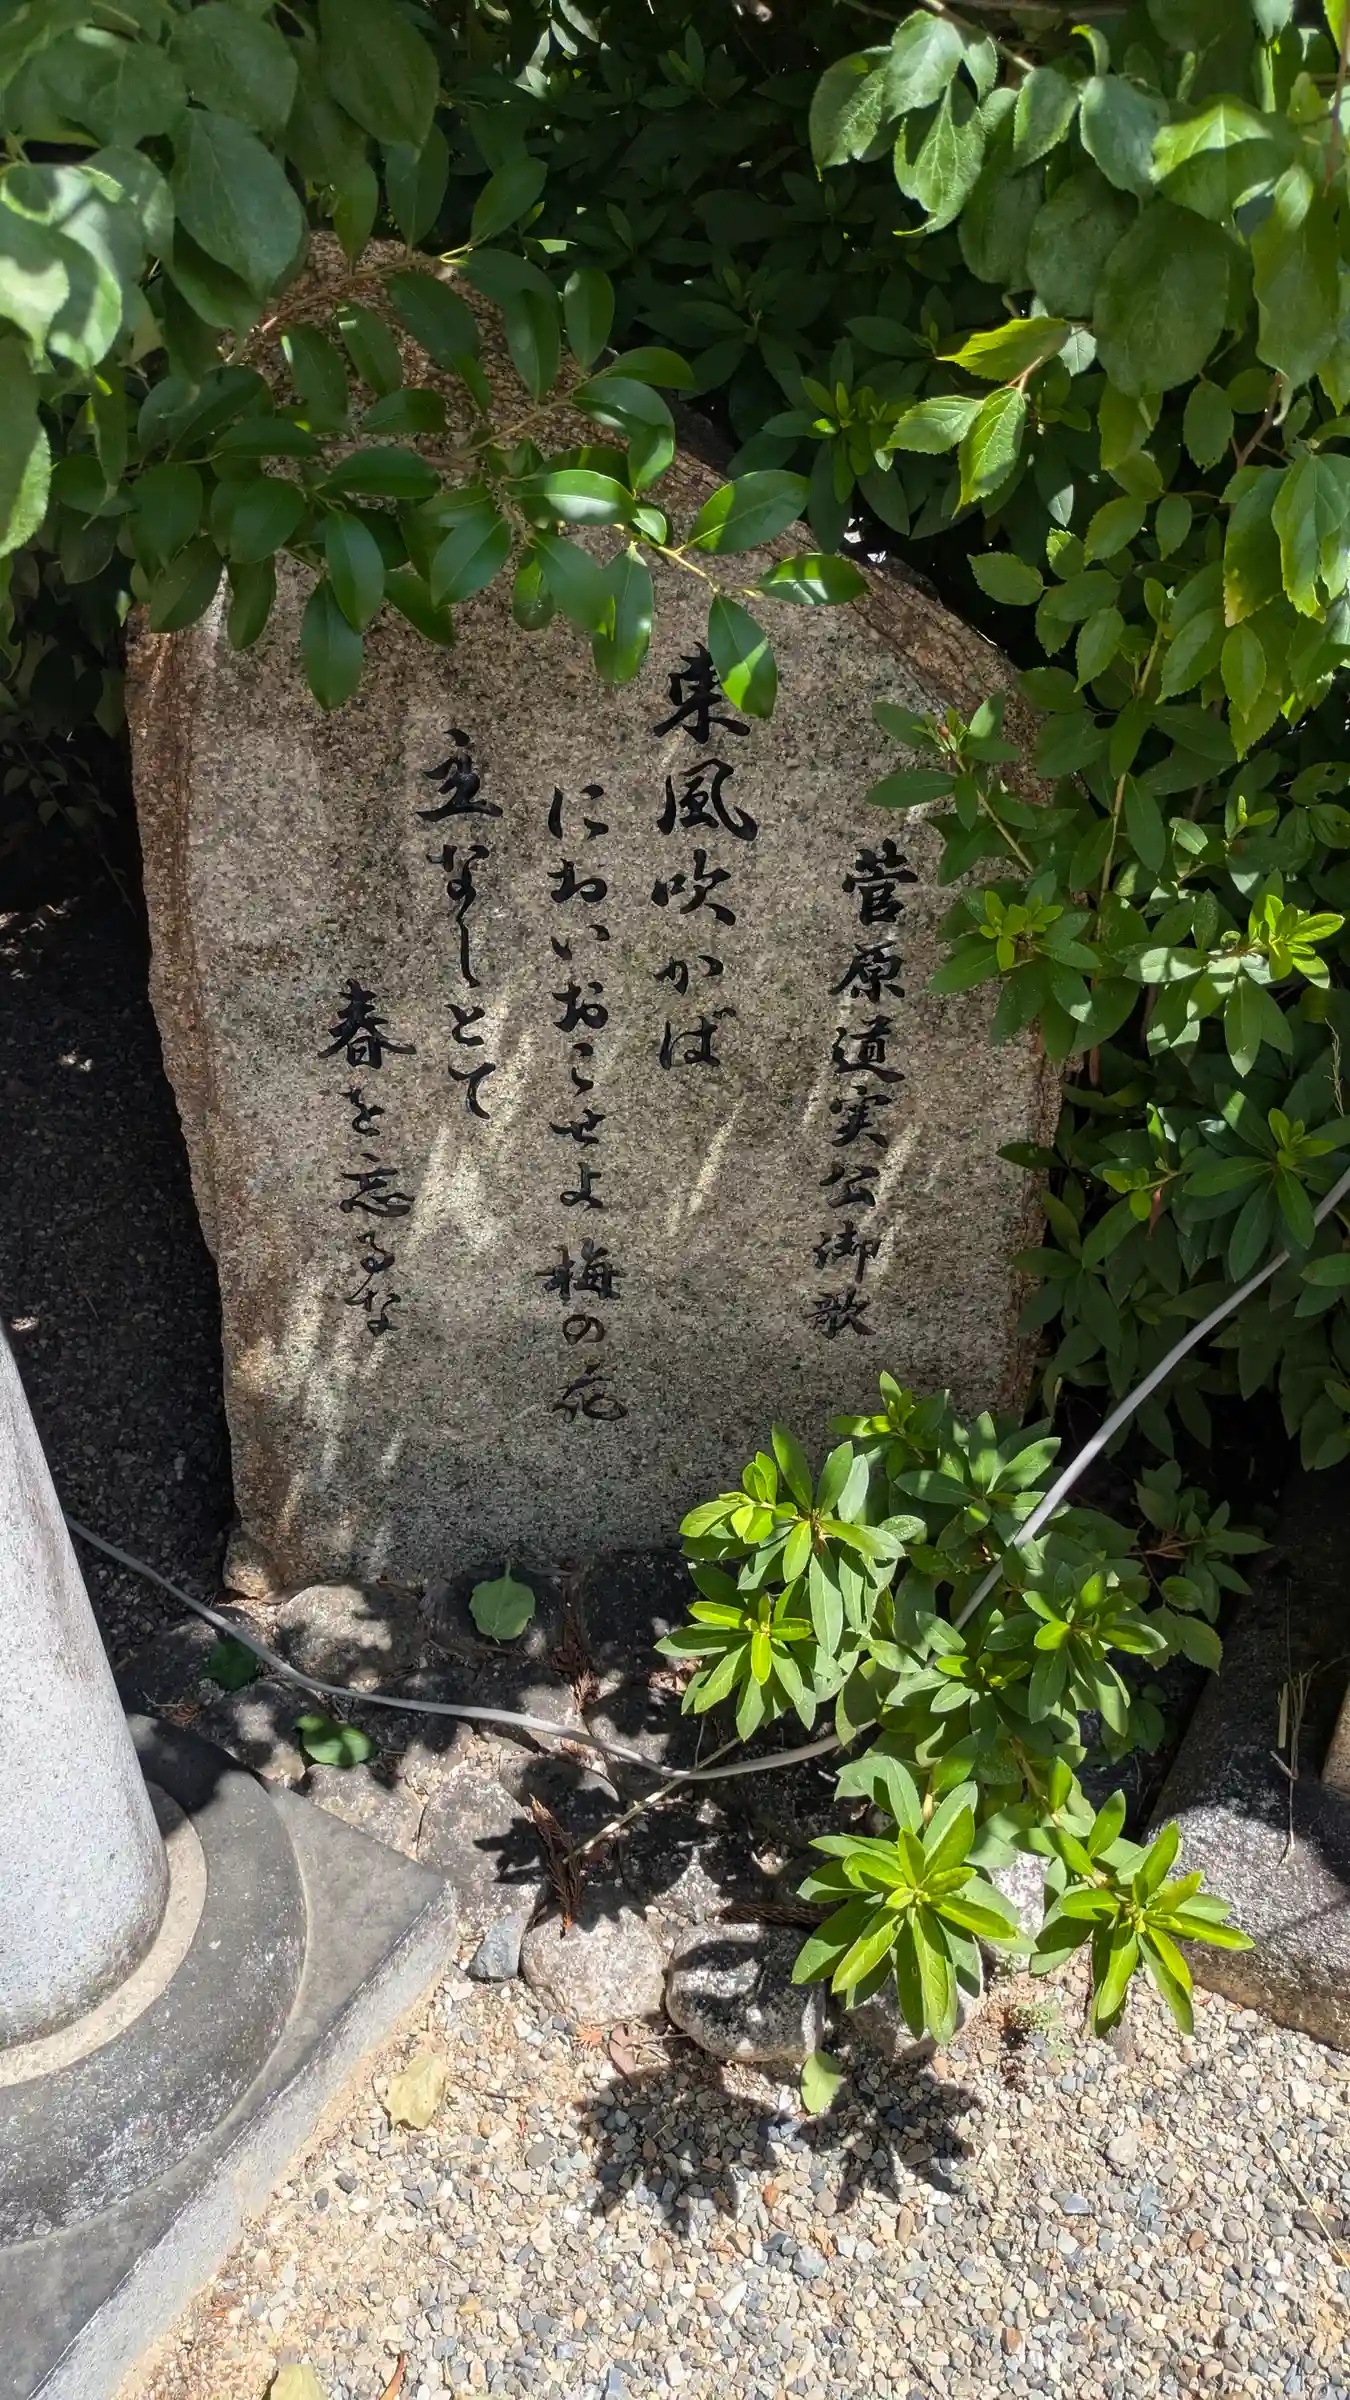 菅原道実公御歌
東風吹かば
においおこせよ梅の花
立なしとて
春を忘るな